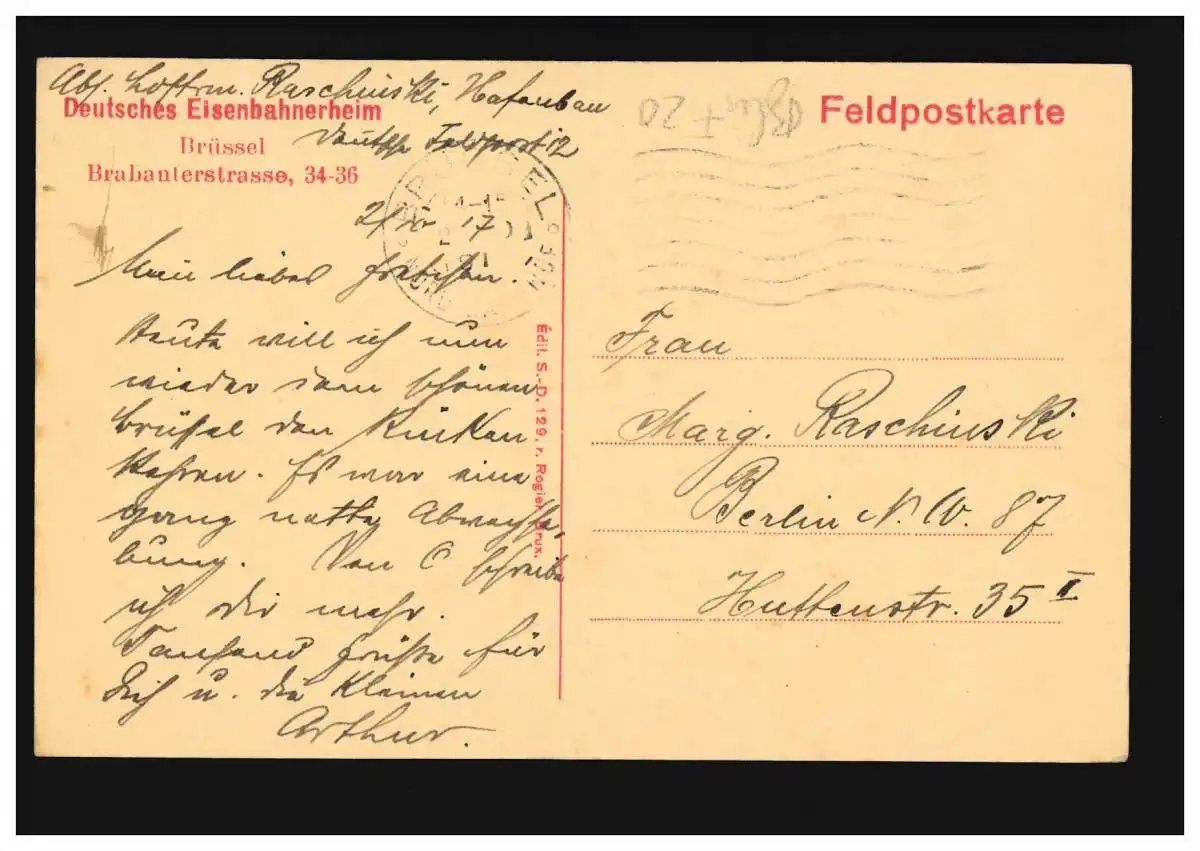 Abs. Raschinski, Hafenbau
Deutsches Eisenbahnerheim
Deutsche Feldpost 12
Brüssel
Brabanterstrasse, 34-36
Feldpostkarte
17
Mein liebes
Heute will ich nun
wieder dem schönen
Brüssel den Rücken
kehren. Es war eine
ganz nette
Von C schreibe
ich dir mehr.
Tausend Grüße für
Dich u. die Kleinen
Arthur.
Édit. S.-D. 129. r. Rogier. Brux.
Frau
Marg. Raschinski
Berlin N. W. 87
Huttenstr. 35 I